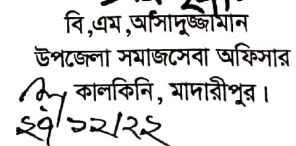 বি,এম,আসাদুজ্জামান
উপজেলা সমাজসেবা অফিসার
কালকিনি, মাদারীপুর।
২৭/১২/২২